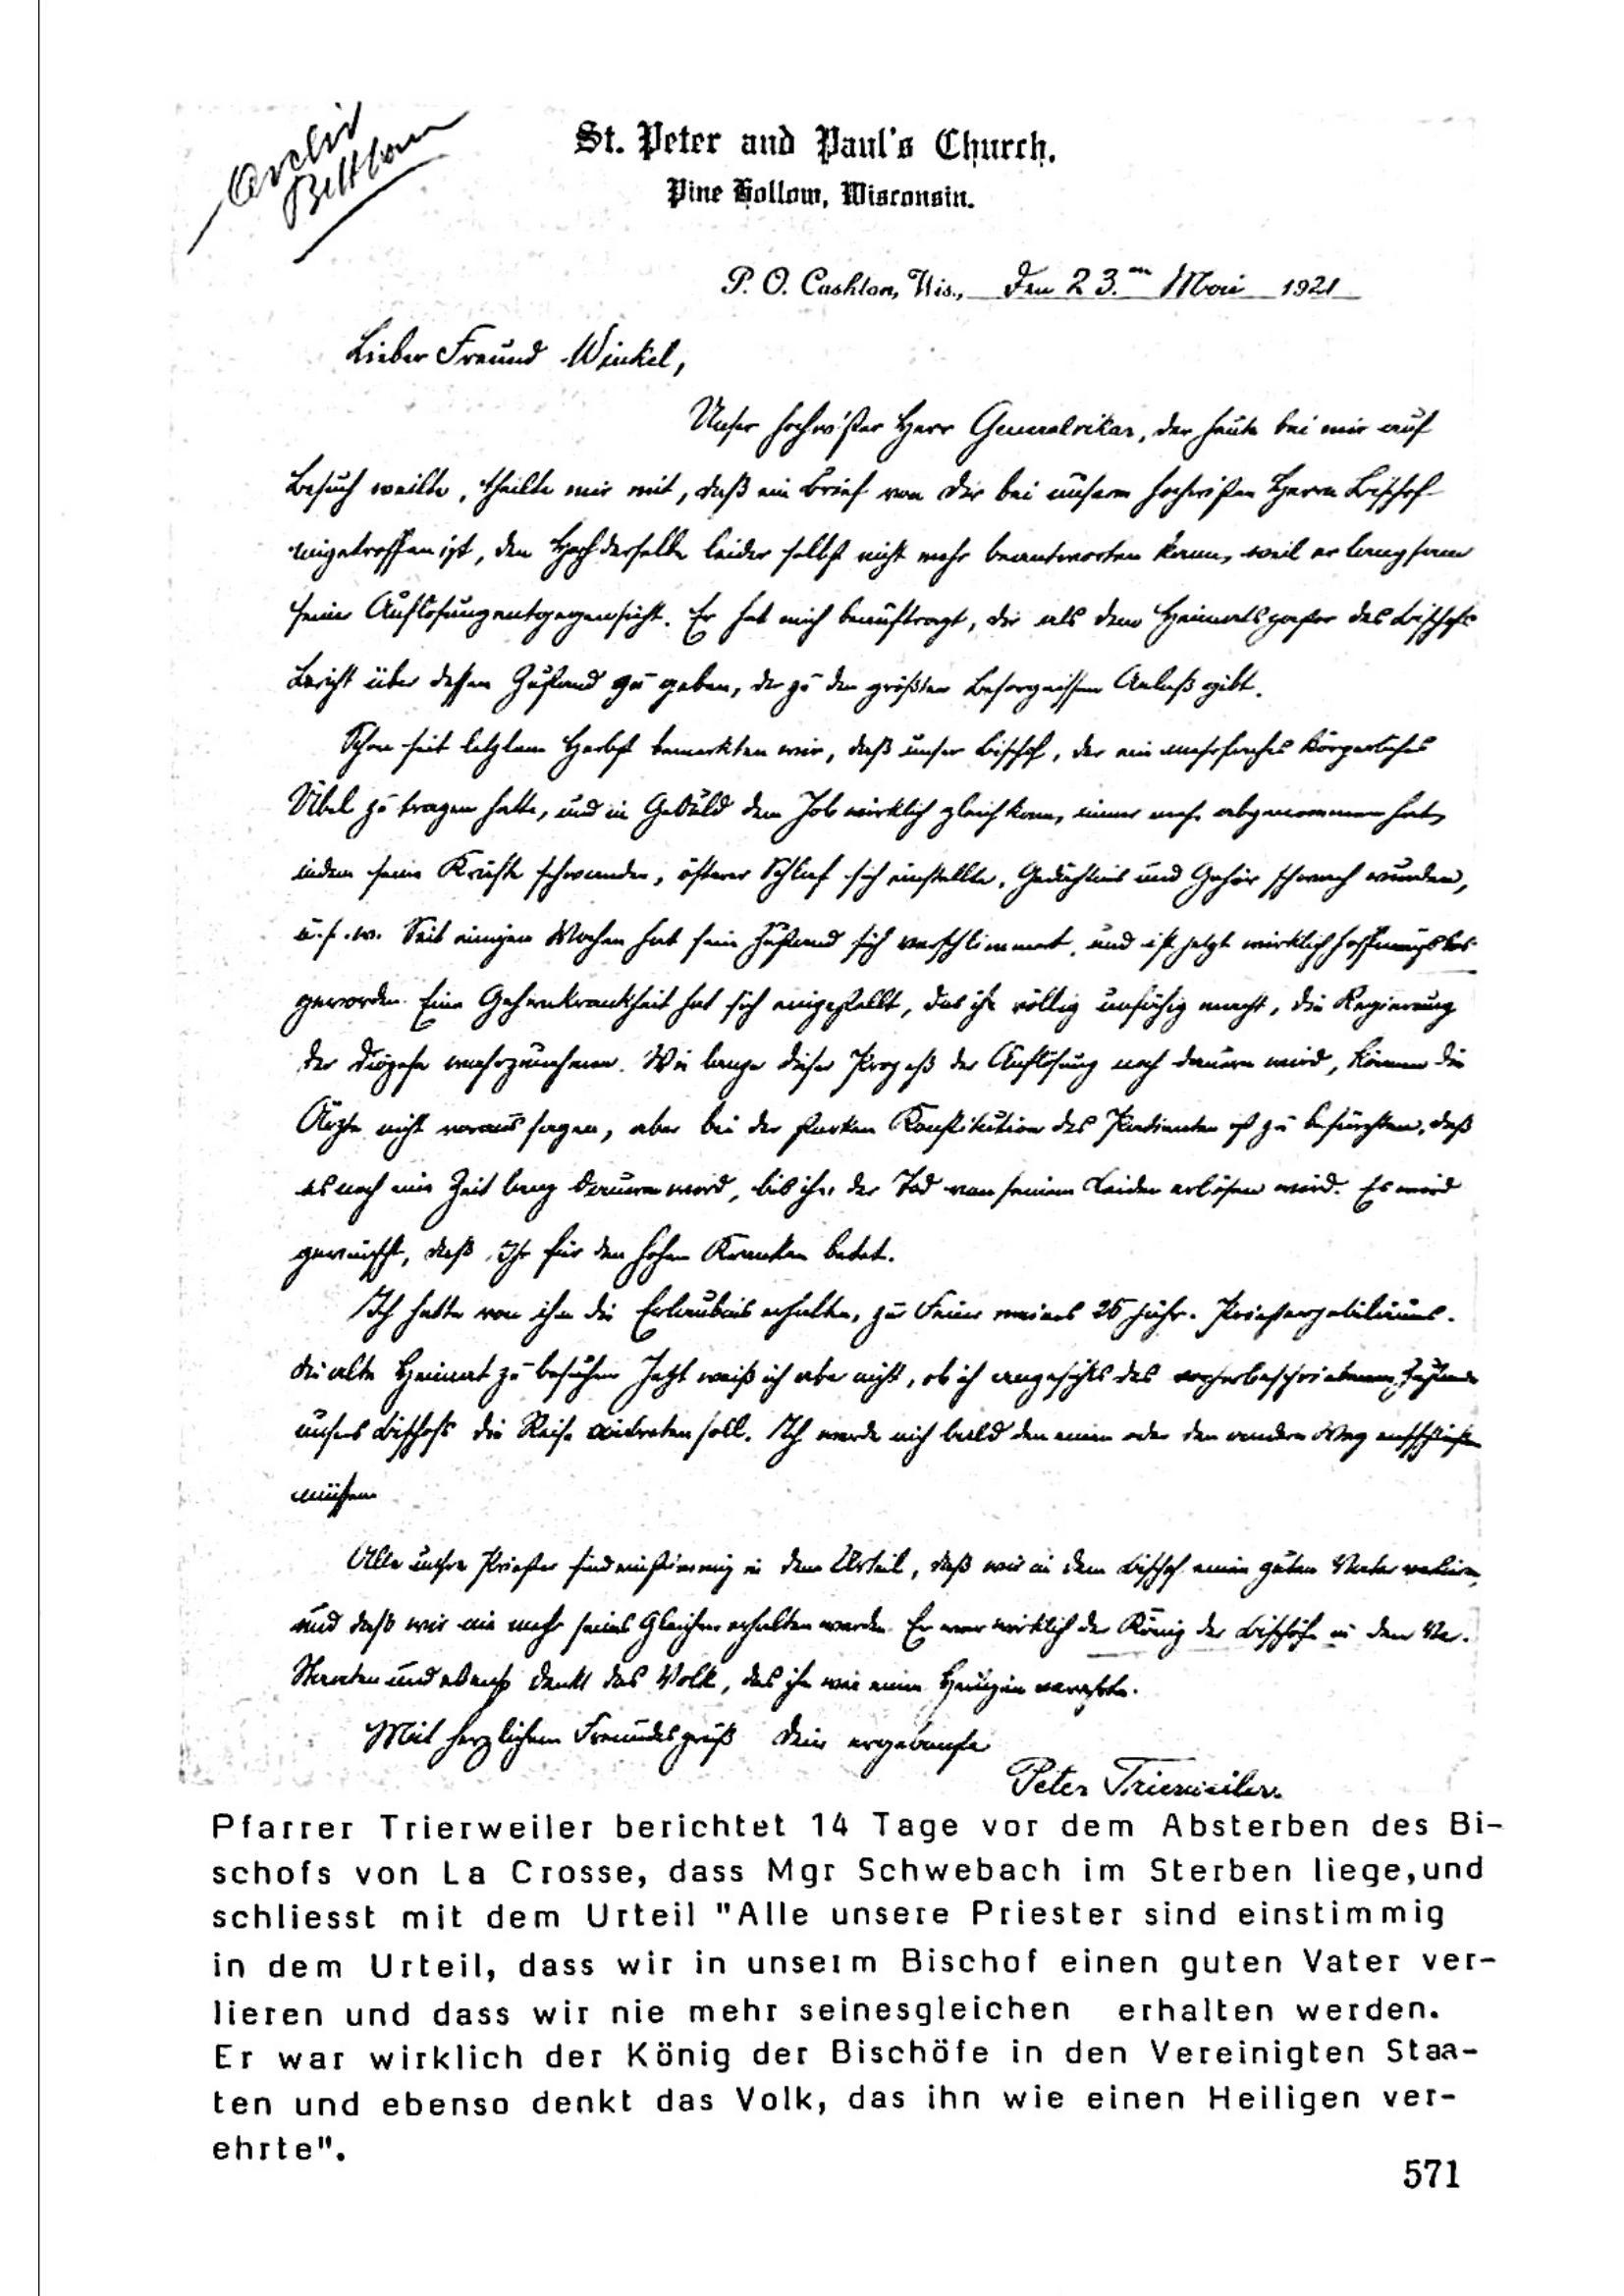 Archiv
Bettborn
St. Peter and Paul's Church.
Pine Hollow, Wisconsin.
P. O. Cashton, Wis., den 23.ten Mai 1921
Lieber Freund Winkel,
Unser hochw'ster Herr Generalvikar, der heute bei mir auf
Besuch weilte, theilte mir mit, daß ein Brief von Dir bei unserm hochw'sten Herrn Bischof
eingetroffen ist, den Hochderselbe leider selbst nicht mehr beantworten kann, weil er langsam
seiner Auflösung entgegensieht. Er hat mich beauftragt, dir als dem Heimatspastor des Bischofs
Bericht über dessen Zustand zu geben, der zu den größten Besorgnissen Anlaß gibt.
Schon seit letztem Herbst bemerkten wir, daß unser Bischof, der ein mehrfaches körperliches
Übel zu tragen hatte, und in Geduld dem Job wirklich gleich kam, immer mehr abgenommen hat,
indem seine Kräfte schwanden, öfterer Schlaf sich einstellte, Gedächtnis und Gehör schwach wurden,
u.s.w. Seit einigen Wochen hat sein Zustand sich verschlimmert und ist jetzt wirklich hoffnungslos
geworden. Eine Gehirnkrankheit hat sich eingestellt, das ihn völlig unfähig macht, die Regierung
der Diözese wahrzunehmen. Wie lange dieser Prozeß der Auflösung noch dauern wird, können die
Ärzte nicht voraus sagen, aber bei der starken Konstitution des Patienten ist zu befürchten, daß
es noch eine Zeit lang dauern wird, bis ihn der Tod von seinem Leiden erlösen wird. Es wird
gewünscht, daß Ihr für den hohen Kranken betet.
Ich hatte von ihm die Erlaubnis erhalten, zur Feier meines 25 jähr. Priesterjubiläums
die alte Heimat zu besuchen Jetzt weiß ich aber nicht, ob ich angesichts des vorherbeschriebenen Zustandes
unsers Bischofs die Reise antreten soll. Ich werde mich bald den einen oder den andern Weg entschließen
müssen
Alle unsre Priester sind einstimmig in dem Urteil, daß wir in dem Bischof einen guten Vater verlieren,
und daß wir nie mehr seines Gleichen erhalten werden. Er war wirklich der König der Bischöfe in den Ver.
Staaten und ebenso denkt das Volk, das ihn wie einen Heiligen verehrte.
Mit herzlichem Freundesgruß Dein ergebenster
Peter Trierweiler.
Pfarrer Trierweiler berichtet 14 Tage vor dem Absterben des Bi-
schofs von La Crosse, dass Mgr Schwebach im Sterben liege,und
schliesst mit dem Urteil "Alle unsere Priester sind einstimmig
in dem Urteil, dass wir in unserm Bischof einen guten Vater ver-
lieren und dass wir nie mehr seinesgleichen erhalten werden.
Er war wirklich der König der Bischöfe in den Vereinigten Staa-
ten und ebenso denkt das Volk, das ihn wie einen Heiligen ver-
ehrte".
571